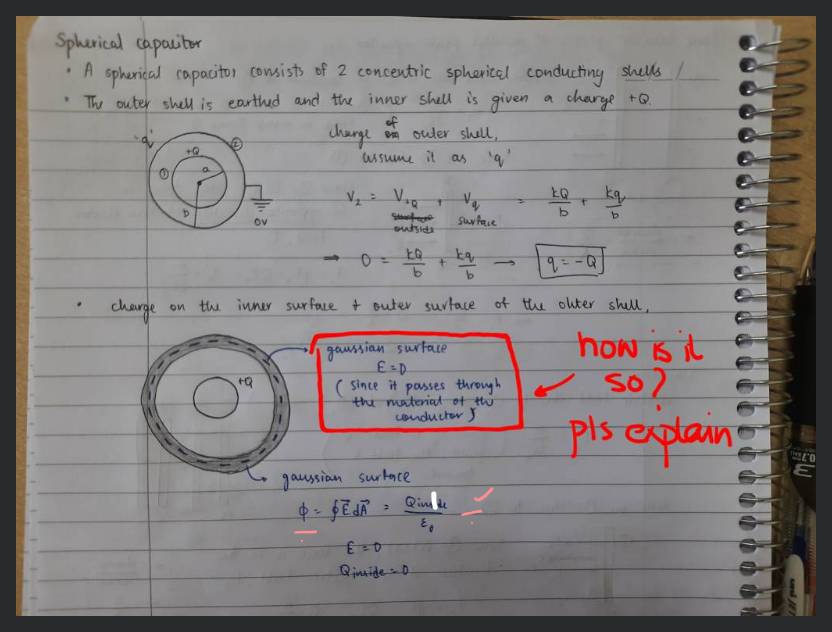 Spherical capacitor
• A spherical capacitor consists of 2 concentric spherical conducting shells /
• The outer shell is earthed and the inner shell is given a charge +Q.
'q'
②
+Q
①
a
b
0V
charge of outer shell,
assume it as 'q'
V₂ = V+Q + Vq = kQ/b + kq/b
surface
outside
surface
→ 0 = kQ/b + kq/b → q = -Q
• charge on the inner surface + outer surface of the outer shell,
+Q
gaussian surface
E = 0
(since it passes through
the material of the
conductor)
how is it
so?
pls explain
gaussian surface
ϕ = ∮E⃗dA⃗ = Qinside/ε₀
E = 0
Qinside = 0
0.7